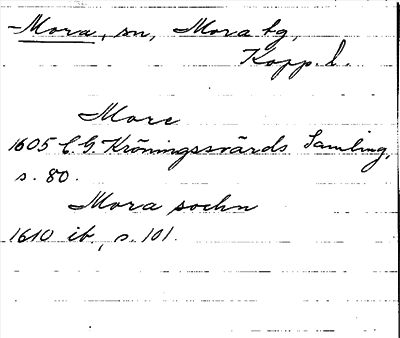 Mora, sn, Mora tg,
Kopp. l.
More
1605 C. G. Kröningssvärds Samling,
s. 80.
Mora sochn
1610 ib, s. 101.